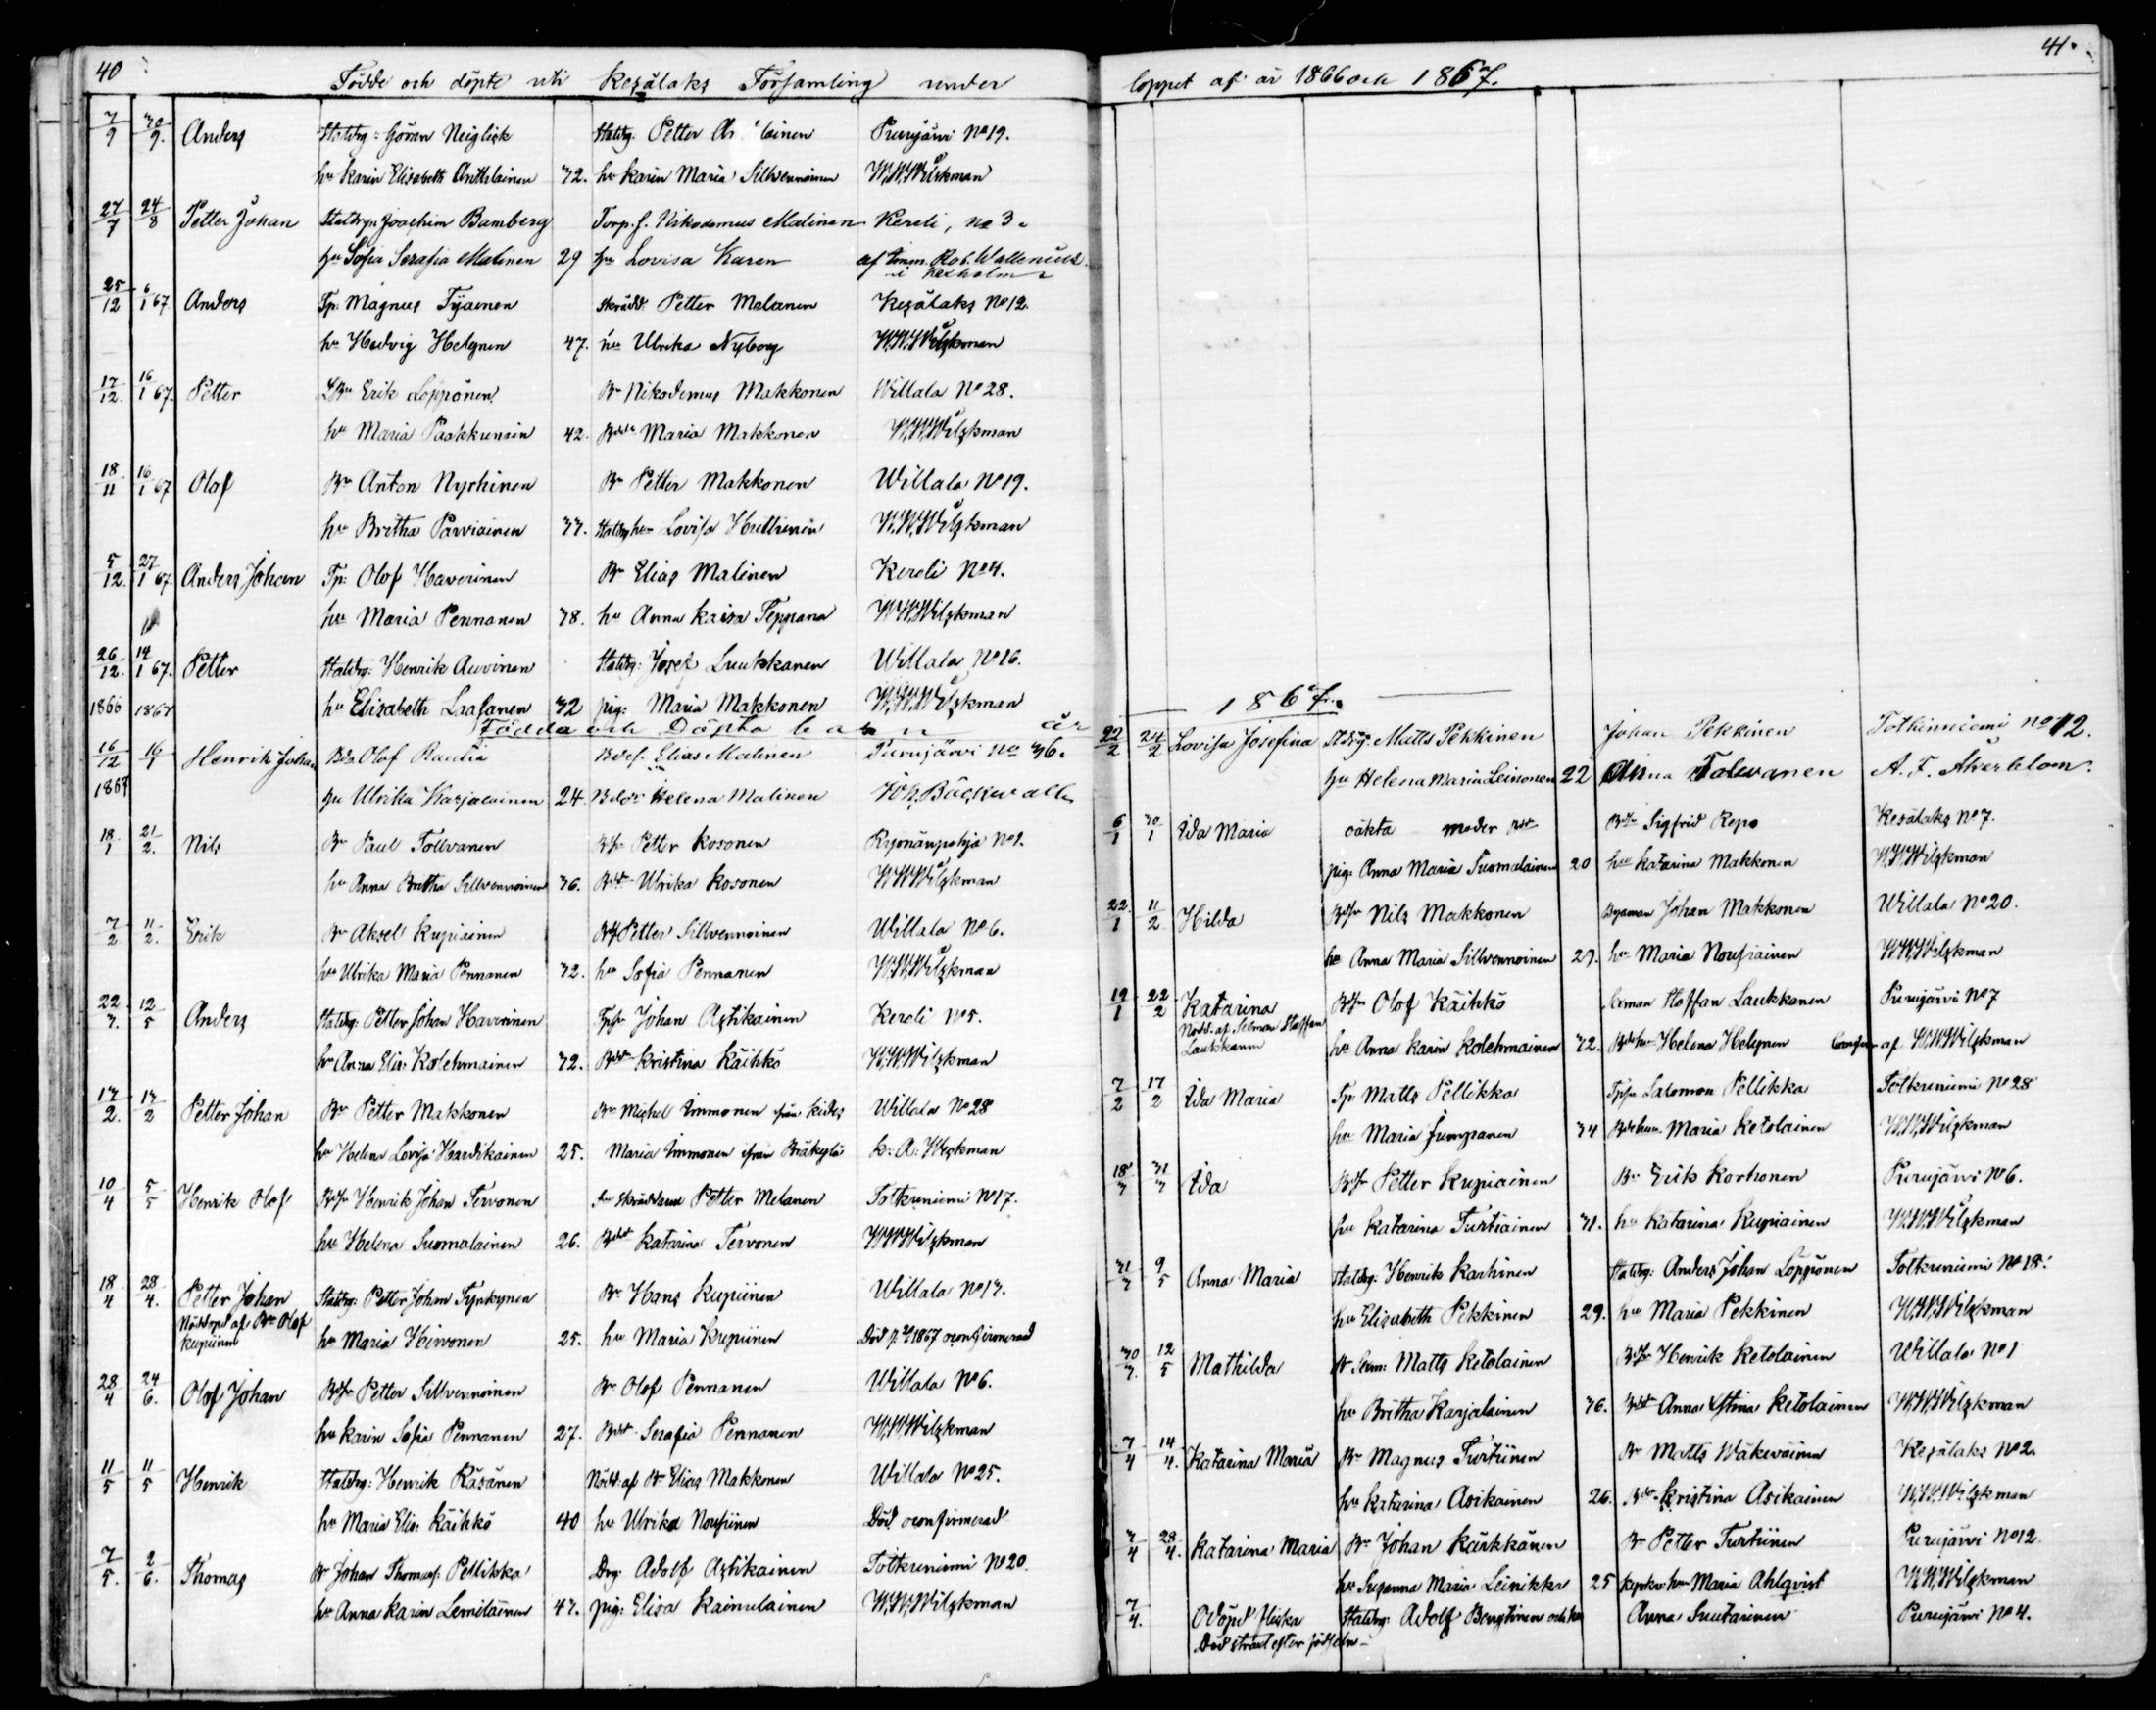 40
Födde och döpte uti Kesälaks Församling under
7/9 30/9. Anders Statdrg: Göran Neiglick Statdrg. Petter Purujärvi No 19.
hu Karin Elisabeth Anttilainen 32. hu Karin Maria Sillvennoinen W.W.Wilskman
27/7 24/8 Petter Johan Statdrgn Joachim Bamberg Torp.s. Nikodemus Malinen Kereli, no 3
hu Sofia Serafia Malinen 29 hu Lovisa Karen af Imm. Rob. Wallenius
i Kexholm
25/12 6/1 67. Anders Tp: Magnus Tyainen Skrädd: Petter Malanen Kesälaks No 12.
hu Hedvig Helynen 47. hu Ulrika Nyborg W.W.Wilskman
17/12. 16/1 67. Petter LBn Erik Löppönen. Bn Nikodemus Makkonen Willala No 28.
hu Maria Paakkunain 42. Maria Makkonen W.W.Wilskman
18/11 16/1 67 Olof Bn Anton Nyrhinen Bn Petter Makkonen Willala No 19.
hu Britha Parviainen 33. Statdrg hu Lovisa Huttunen W.W.Wilskman
5/12. 27/1 67. Anders Johan Tp: Olof Haverinen Bn Elias Malinen Kereli No 4.
hu Maria Pennanen 38. hu Anna Kaisa Teppana W.W.Wilskman
26/12. 14/1 67. Petter Statdrg: Henrik Auvinen Statdrg: Josef Luukkanen Willala No 16.
1866 1867 hu Elisabeth Laasanen 32 pig: Maria Makkonen W.W.Wilskman
Födda och Döpta barn år
16/12 16/1 Henrik Johan Bdn Olof Rautia Bdes. Elias Malinen Purujärvi No 36.
1867 hu Ulrika Karjalainen 24. Helena Malinen Joh. Bäckwall
18/1 21/2. Nils Bn Paul Tollvanen Petter Kosonen Ryönänpohja No 1.
hu Anna Britha Sillvennoinen 36. Ulrika Kosonen W.W.Wilskman
7/2 11/2. Erik Bn Aksel Kupiainen Petter Sillvennoinen Willala No 6.
hu Ulrika Maria Pennanen 32. hu Sofia Pennanen W.W.Wilskman
22/3. 12/5 Anders Statdrg: Petter Johan Haverinen Johan Astikainen Kereli No 5.
hu Anna Elis: Kolehmainen 32. Kristina Käihkö W.W.Wilskman
13/2. 13/2 Petter Johan Bn Petter Makkonen Bn Michel Immonen från Kides Willala No 28
hu Helena Lovisa Hardikainen 25. Maria Immonen ifrån Bräkylä K: A: Weckman
10/4 5/5 Henrik Olof Henrik Johan Tervonen Skräddaren Petter Melanen Totkuniemi No 17.
hu Helena Suomalainen 26. Katrina Tervonen W.W.Wilskman
18/4 28/4. Petter Johan Statdrg: Petter Johan Tynkynen Bn Hans Kupiinen Willala No 13.
Nöddöpt af Bn Olof Kupiinen hu Maria Hirvonen 25. hu Maria Kupiinen Död 1867 oconfirmerad
28/4 24/6. Olof Johan Petter Sillvennoinen Bn Olof Pennanen Willala No 6.
hu Karin Sofia Pennanen 27. Serafia Pennanen W.W.Wilskman
11/5 11/5 Henrik Statdrg: Henrik Räsänen Nödd. af Bn Elias Makkonen Willala No 25.
hu Maria Elis: Käihkö 40 hu Ulrika Nousiinen Död oconfirmerad
7/5. 2/6. Thomas Bn Johan Thomass: Pellikka Drg: Adolf Astikainen Totkuniemi No 20.
hu Anna Karin Lemilainen 43. pig: Elisa Kainulainen W.W.Wilskman
41.
loppet af år 1866 och 1867.
1867.
22/2 24/2 Lovisa Josefina Stdrg. Matts Pekkinen Johan Pekkinen Totkinniemi No 12.
hu Helena Maria Leinonen 22 Anna Tolvanen A. F. Åkerblom.
6/1 30/1 Ida Maria oäkta moder Sigfrid Repo Kesälaks No 7.
pig: Anna Maria Suomalainen 20 hu Katarina Makkonen W.W.Wilskman
22/1 11/2 Hilda Nils Makkonen Johan Makkonen Willala No 20.
hu Anna Maria Sillvennoinen 23. hu Maria Nousiainen W.W.Wilskman
19/1 22/2 Katarina Olof Käihkö Sexman Staffan Laukkanen Purujärvi No 7
Nödd. af Sexman Staffan Laukkanen hu Anna Karin Kolehmainen 32. Helena Helynen af W.W.Wilskman
7/2 17/2 Ida Maria Tp: Matts Pellikka Salomon Pellikka Totkuniemi No 28
hu Maria Jumpanen 34 Maria Ketolainen W.W.Wilskman
18/3 31/3 Ida Petter Kupiainen Bn Erik Korhonen Purujärvi No 6.
hu Katarina Turtiainen 31. hu Katarina Kupiainen W.W.Wilskman
31/3 9/5 Anna Maria Statdrg: Henrik Karhinen Statdrg: Anders Johan Löppönen Totkuniemi No 18.
hu Elisabeth Pekkinen 29. hu Maria Pekkinen W.W.Wilskman
30/3. 12/5 Mathilda Matts Ketolainen Henrik Ketolainen Willala No 1
hu Britha Karjalainen 36. Anna Stina Ketolainen W.W.Wilskman
7/4 14/4. Katarina Maria Bn Magnus Turtiinen Bn Matts Wäkeväinen Kesälaks No 2.
hu Katarina Asikainen 26. Kristina Asikainen W.W.Wilskman
3/4 28/4. Katarina Maria Bn Johan Kärkkänen Bn Petter Turtiinen Purujärvi No 12.
hu Susanna Maria Leinikka 25 hu Maria Ahlqvist W.W.Wilskman
7/4. Odöpd flicka Statdrg: Adolf Bengtinen och hu Anna Suutarinen Purujärvi No 4.
Död strax efter födseln